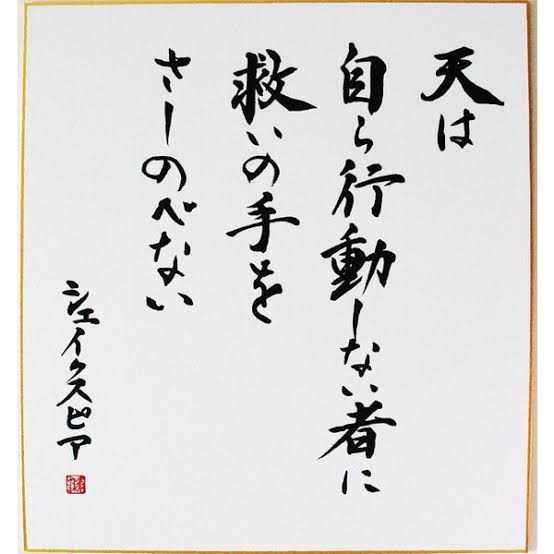 天は
自ら行動しない者に
救いの手を
さしのべない
シェイクスピア